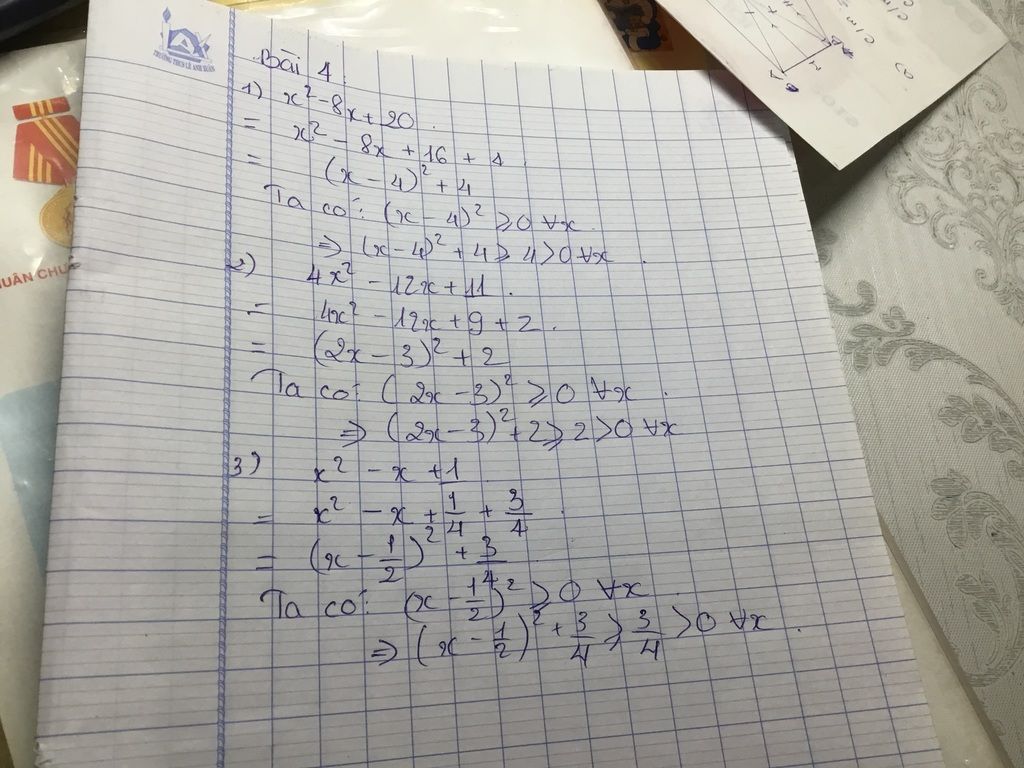 TRƯỜNG THCS LÊ ANH XUÂN
Bài 4
1) x² - 8x + 20.
= x² - 8x + 16 + 4
= (x - 4)² + 4
Ta có: (x - 4)² ⩾ 0 ∀x.
⇒ (x - 4)² + 4 ⩾ 4 > 0 ∀x.
2) 4x² - 12x + 11.
= 4x² - 12x + 9 + 2.
= (2x - 3)² + 2
Ta có: (2x - 3)² ⩾ 0 ∀x.
⇒ (2x - 3)² + 2 ⩾ 2 > 0 ∀x
3) x² - x + 1
= x² - x + 1/4 + 3/4.
= (x - 1/2)² + 3/4
Ta có: (x - 1/2)² ⩾ 0 ∀x.
⇒ (x - 1/2)² + 3/4 ⩾ 3/4 > 0 ∀x.